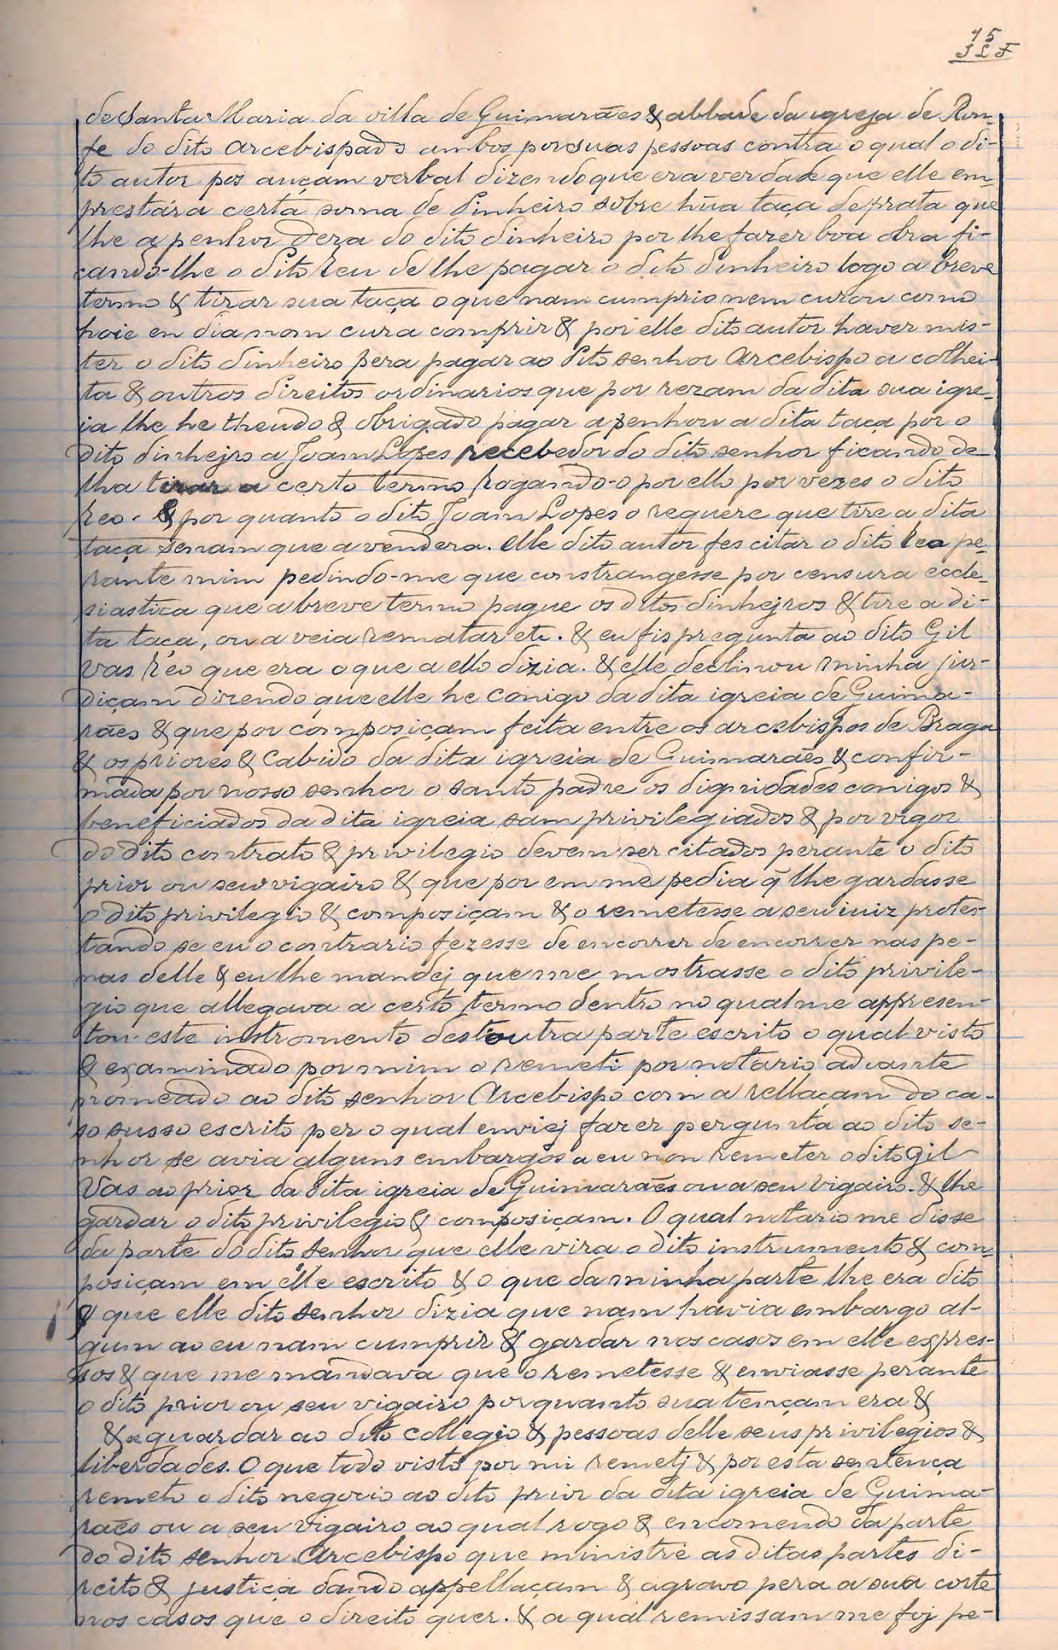 15
SLF
de Santa Maria da villa de Guimarães & abbade da igreja de Ron-
fe do dito arcebispado ambos por suas pessoas contra o qual o di-
to autor pos auçam verbal dizendo que era verdade que elle em-
prestára certa soma de dinheiro sobre hũa taça de prata que
lhe apenhor dera do dito dinheiro por lhe fazer boa obra fi-
cando-lhe o dito reu de lhe pagar o dito dinheiro logo a breve
termo & tirar sua taça o que nam cumprio nem curou como
hoie en dia nom cura comprir & por elle dito autor haver mis-
ter o dito dinheiro pera pagar ao dito senhor Arcebispo a colhei-
ta & outros direitos ordinarios que por rezam da dita sua igre-
ia lhe he theudo & obrigado pagar apenhou a dita taça por o
dito dinhejro a Joam Lopes recebedor do dito senhor ficando de
lha tirar a certo termo rogando-o por ello por vezes o dito
reo. & por quanto o dito Joam Lopes o requere que tire a dita
taça senam que a vendera. elle dito autor fes citar o dito reo pe-
rante mim pedindo-me que constrangesse por censura eccle-
siastica que a breve termo pague os ditos dinhejros & tire a di-
ta taça, ou a veia rematar etc. & eu fis pregunta ao dito Gil
Vas réo que era o que a ello dizia. & elle declinou minha jur-
diçam dizendo que elle he conigo da dita igreia de Guima-
rães & que por composiçam feita entre os arcebispos de Braga
& os priores & Cabido da dita igreia de Guimarães & confir-
mada por nosso senhor o santo padre os dignidades conigos &
beneficiados da dita igreia sam privilegiados & por vigor
do dito contrato & privilegio devem ser citados perante o dito
prior ou seu vigairo & que por em me pedia q̃ lhe gardasse
o dito privilegio & composiçam & o remetesse a seu iuiz protes-
tando se eu o contrario fezesse de encorrer de encorrer nas pe-
nas delle & eu lhe mandej que me mostrasse o dito privile-
gio que allegava a certo termo dentro no qual me appresen-
tou este instromento destoutra parte escrito o qual visto
& examinado por mim o remeti por notario adiante
nomeado ao dito senhor Arcebispo com a rellaçam do ca-
so susso escrito per o qual enviej fazer pergunta ao dito se-
nhor se avia alguns embargos a eu non remeter o dito Gil
Vas ao prior da dita igreia de Guimarães ou a seu vigairo. & lhe
gardar o dito privilegio & composiçam. O qual notario me disse
da parte do dito senhor que elle vira o dito instrumento & com-
posiçam em elle escrito & o que da minha parte lhe era dito
& que elle dito senhor dizia que nam havia embargo al-
gum ao eu nam cumprir & gardar nos casos em elle expres-
sos & que me mandava que o remetesse & enviasse perante
o dito prior ou seu vigairo porquanto sua tençam era &
& guardar ao dito collegio & pessoas delle seus privilegios &
liberdades. O que todo visto por mi remetj & por esta sentença
remeto o dito negocio ao dito prior da dita igreia de Guima-
rães ou a seu vigairo ao qual rogo & encomendo da parte
do dito senhor Arcebispo que ministre as ditas partes di-
reito & justiça dando appellaçam & agravo pera a sua corte
nos casos que o direito quer. & a qual remissam me foj pe-